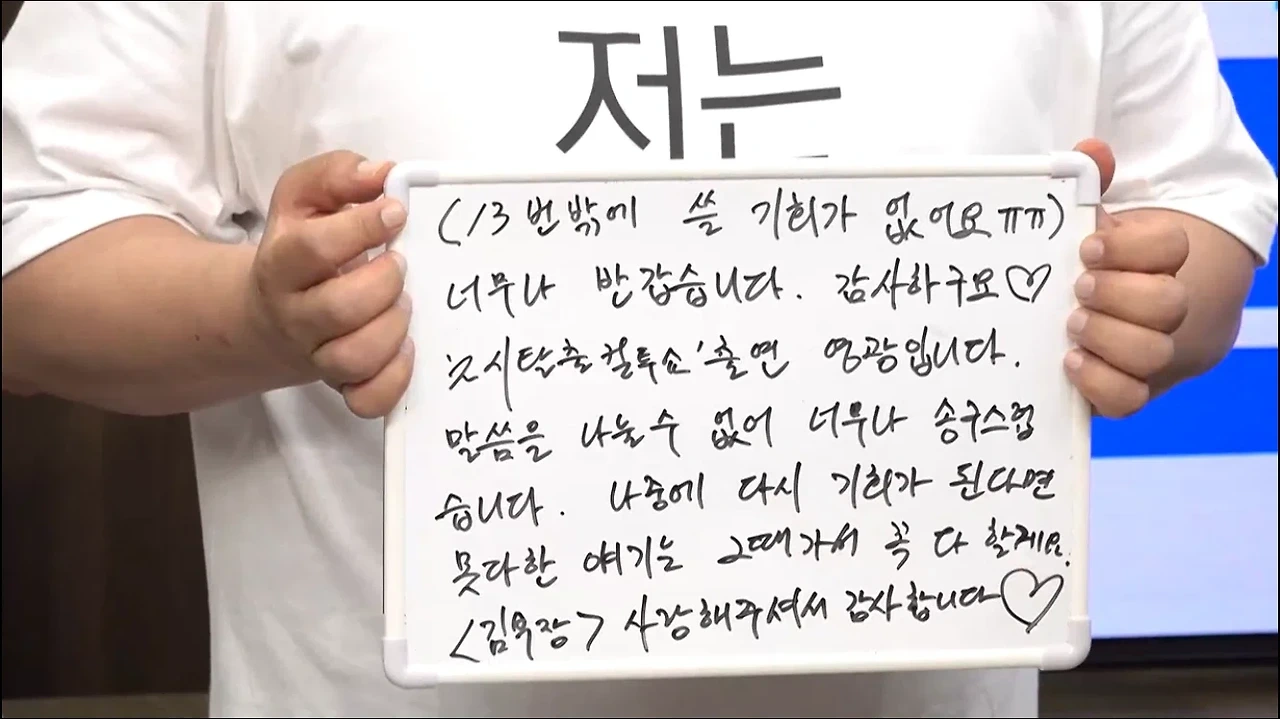 저는
(13번밖에 쓸 기회가 없어요ㅠㅠ)
너무나 반갑습니다. 감사하구요♡
'2시탈출컬투쇼' 출연 영광입니다.
말씀을 나눌 수 없어 너무나 송구스럽
습니다. 나중에 다시 기회가 된다면
못다한 얘기는 그때가서 꼭 다 할게요.
<김묵장> 사랑해주셔서 감사합니다♡